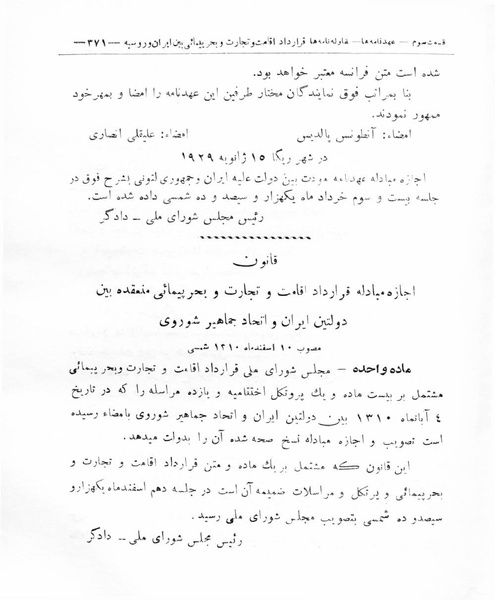 قسمت سوم — عهدنامه‌ها — مقاوله‌نامه‌ها قرارداد اقامت و تجارت و بحرپیمائی بین ایران و روسیه —۳۷۱—
شده است متن فرانسه معتبر خواهد بود.
بنا بمراتب فوق نمایندگان مختار طرفین این عهدنامه را امضا و بمهر خود
ممهور نمودند.
امضاء: آنطونس بالدیس امضاء: علیقلی انصاری
در شهر ریگا ۱۵ ژانویه ۱۹۲۹
اجازه مبادله عهدنامه مودت بین دولت علیه ایران و جمهوری لتونی بشرح فوق در
جلسه بیست و سوم خرداد ماه یکهزار و سیصد و ده شمسی داده شده است.
رئیس مجلس شورای ملی — دادگر
قانون
اجازه مبادله قرارداد اقامت و تجارت و بحرپیمائی منعقده بین
دولتین ایران و اتحاد جماهیر شوروی
مصوب ۱۰ اسفندماه ۱۳۱۰ شمسی
ماده واحده — مجلس شورای ملی قرارداد اقامت و تجارت و بحرپیمائی
مشتمل بر بیست ماده و یك پرتكل اختتامیه و یازده مراسله را که در تاریخ
٤ آبانماه ۱۳۱۰ بین دولتین ایران و اتحاد جماهیر شوروی بامضاء رسیده
است تصویب و اجازه مبادله نسخ صحه شده آن را بدولت میدهد.
این قانون که مشتمل بر یك ماده و متن قرارداد اقامت و تجارت و
بحرپیمائی و پرتكل و مراسلات ضمیمه آن است در جلسه دهم اسفندماه یکهزار و
سیصد و ده شمسی بتصویب مجلس شورای ملی رسید.
رئیس مجلس شورای ملی — دادگر